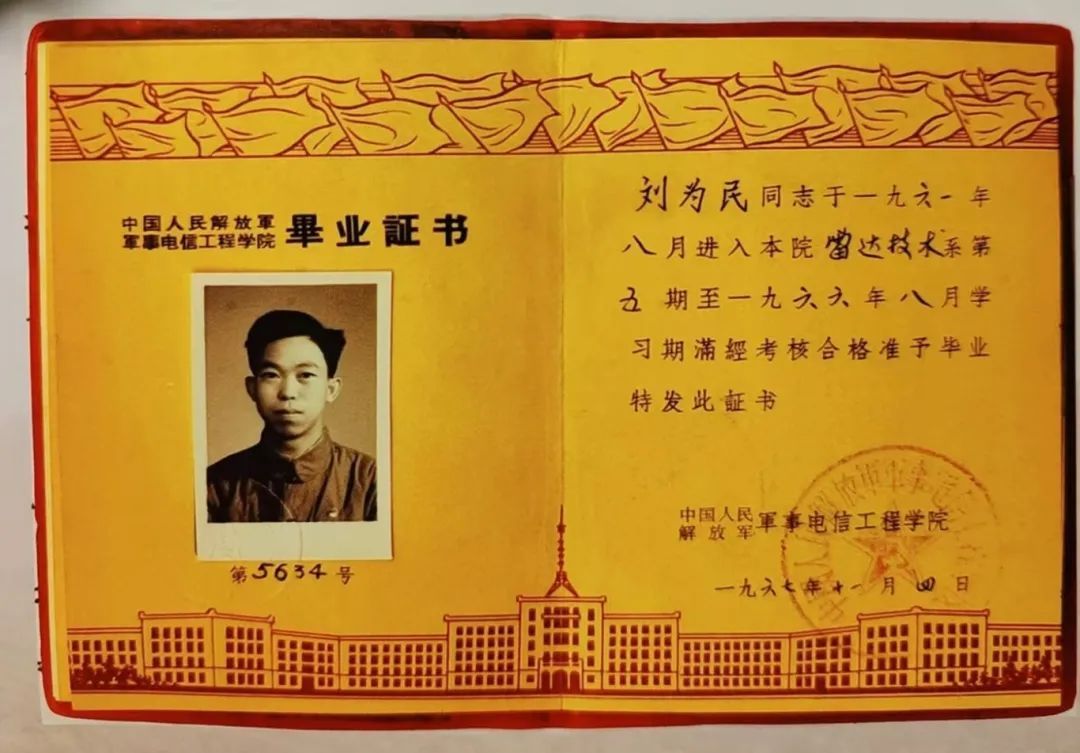 中国人民解放軍
軍事电信工程学院 畢业証书
第5634号
刘为民同志于一九六一年
八月进入本院雷达技术系第
五期至一九六六年八月学
习期滿經考核合格准予毕业
特发此証书
中国人民
解放军 軍事电信工程学院
一九六七年十一月四日